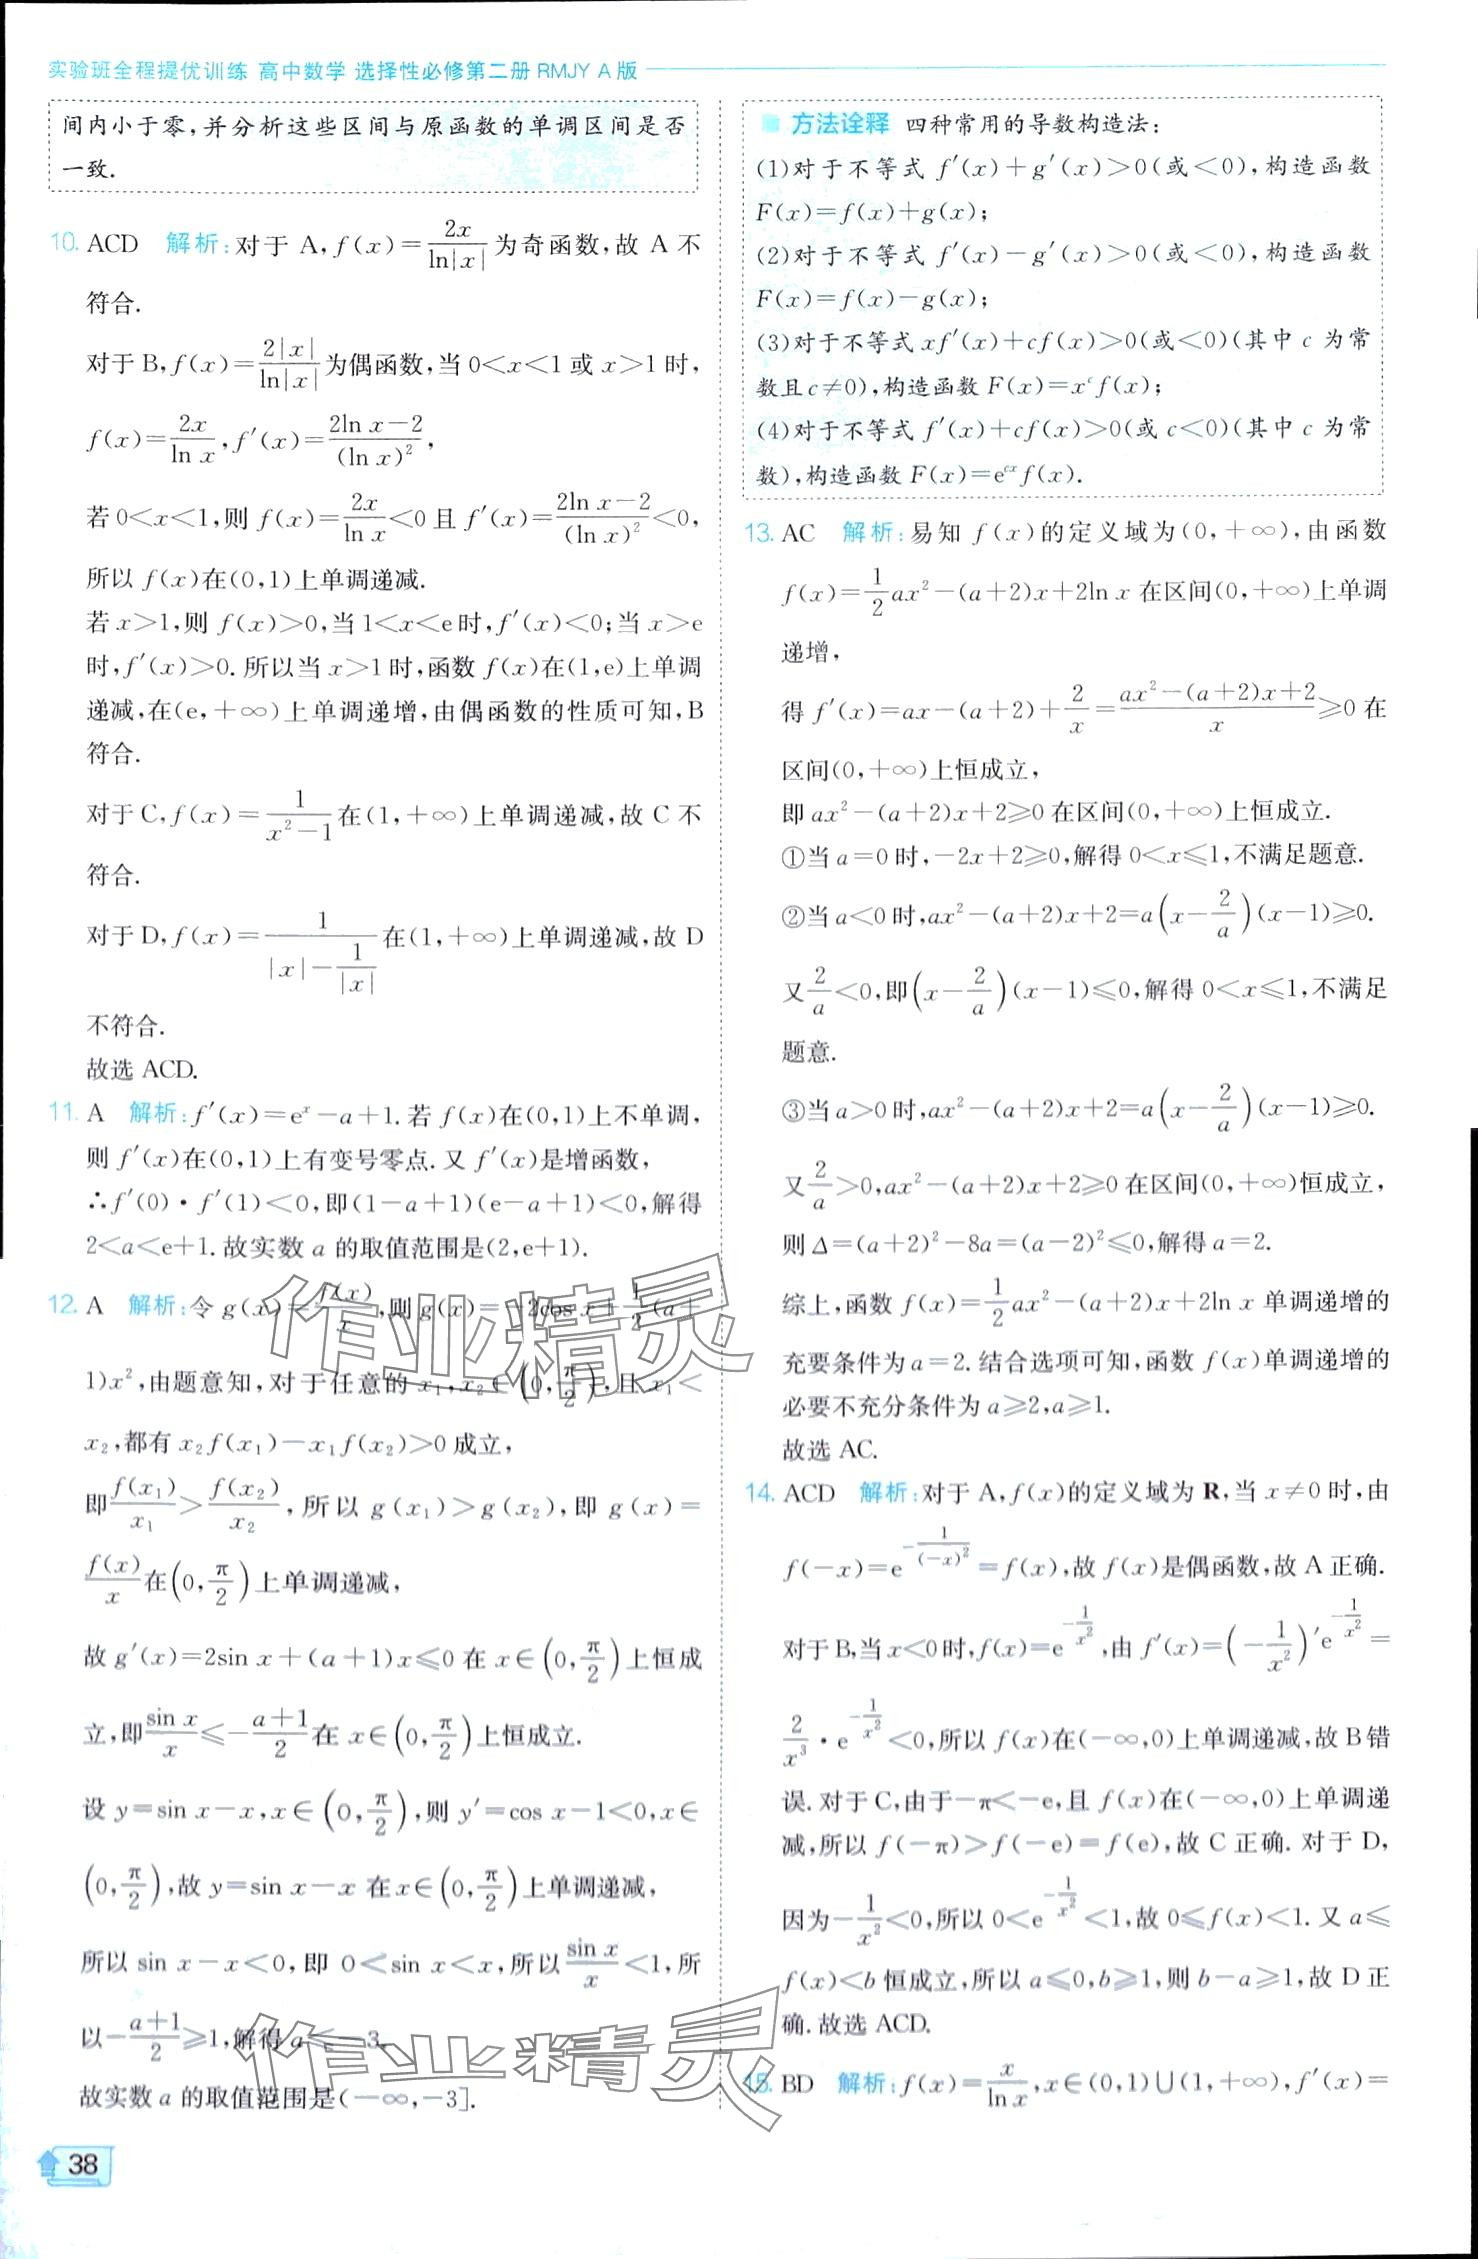 实验班全程提优训练 高中数学 选择性必修第二册 RMJY A 版
间内小于零,并分析这些区间与原函数的单调区间是否
一致.
10. ACD 解析:对于 A,f(x)=2x/ln|x|为奇函数,故 A 不
符合.
对于 B,f(x)=2|x|/ln|x|为偶函数,当 0<x<1 或 x>1 时,
f(x)=2x/ln x,f′(x)=(2ln x-2)/(ln x)²,
若 0<x<1,则 f(x)=2x/ln x<0 且 f′(x)=(2ln x-2)/(ln x)²<0,
所以 f(x)在(0,1)上单调递减.
若 x>1,则 f(x)>0,当 1<x<e时,f′(x)<0;当 x>e
时,f′(x)>0.所以当 x>1 时,函数 f(x)在(1,e)上单调
递减,在(e,+∞)上单调递增,由偶函数的性质可知,B
符合.
对于 C,f(x)=1/(x²-1)在(1,+∞)上单调递减,故 C 不
符合.
对于 D,f(x)=1/(|x|-1/|x|)在(1,+∞)上单调递减,故 D
不符合.
故选 ACD.
11. A 解析:f′(x)=eˣ-a+1.若 f(x)在(0,1)上不单调,
则 f′(x)在(0,1)上有变号零点.又 f′(x)是增函数,
∴f′(0)·f′(1)<0,即(1-a+1)(e-a+1)<0,解得
2<a<e+1.故实数 a 的取值范围是(2,e+1).
12. A 解析:令 g(x)=f(x)/x,则 g(x)=-2cos x+1/2(a+
1)x²,由题意知,对于任意的 x₁,x₂∈(0,π/2),且 x₁<
x₂,都有 x₂f(x₁)-x₁f(x₂)>0 成立,
即f(x₁)/x₁>f(x₂)/x₂,所以 g(x₁)>g(x₂),即 g(x)=
f(x)/x在(0,π/2)上单调递减,
故 g′(x)=2sin x+(a+1)x≤0 在 x∈(0,π/2)上恒成
立,即sin x/x≤-(a+1)/2在 x∈(0,π/2)上恒成立.
设 y=sin x-x,x∈(0,π/2),则 y′=cos x-1<0,x∈
(0,π/2),故 y=sin x-x 在 x∈(0,π/2)上单调递减,
所以 sin x-x<0,即 0<sin x<x,所以sin x/x<1,所
以-(a+1)/2≥1,解得 a≤-3.
故实数 a 的取值范围是(-∞,-3].
38
方法诠释 四种常用的导数构造法:
(1)对于不等式 f′(x)+g′(x)>0(或<0),构造函数
F(x)=f(x)+g(x);
(2)对于不等式 f′(x)-g′(x)>0(或<0),构造函数
F(x)=f(x)-g(x);
(3)对于不等式 xf′(x)+cf(x)>0(或<0)(其中 c 为常
数且 c≠0),构造函数 F(x)=xᶜf(x);
(4)对于不等式 f′(x)+cf(x)>0(或 c<0)(其中 c 为常
数),构造函数 F(x)=eᶜˣf(x).
13. AC 解析:易知 f(x)的定义域为(0,+∞),由函数
f(x)=1/2ax²-(a+2)x+2ln x 在区间(0,+∞)上单调
递增,
得 f′(x)=ax-(a+2)+2/x=(ax²-(a+2)x+2)/x≥0 在
区间(0,+∞)上恒成立,
即 ax²-(a+2)x+2≥0 在区间(0,+∞)上恒成立.
①当 a=0 时,-2x+2≥0,解得 0<x≤1,不满足题意.
②当 a<0 时,ax²-(a+2)x+2=a(x-2/a)(x-1)≥0.
又2/a<0,即(x-2/a)(x-1)≤0,解得 0<x≤1,不满足
题意.
③当 a>0 时,ax²-(a+2)x+2=a(x-2/a)(x-1)≥0.
又2/a>0,ax²-(a+2)x+2≥0 在区间(0,+∞)恒成立,
则 Δ=(a+2)²-8a=(a-2)²≤0,解得 a=2.
综上,函数 f(x)=1/2ax²-(a+2)x+2ln x 单调递增的
充要条件为 a=2.结合选项可知,函数 f(x)单调递增的
必要不充分条件为 a≥2,a≥1.
故选 AC.
14. ACD 解析:对于 A,f(x)的定义域为 R,当 x≠0 时,由
f(-x)=e^(-1/(-x)²)=f(x),故 f(x)是偶函数,故 A 正确.
对于 B,当 x<0 时,f(x)=e^(-1/x²),由 f′(x)=(-1/x²)′e^(-1/x²)=
2/x³·e^(-1/x²)<0,所以 f(x)在(-∞,0)上单调递减,故 B 错
误.对于 C,由于-π<-e,且 f(x)在(-∞,0)上单调递
减,所以 f(-π)>f(-e)=f(e),故 C 正确.对于 D,
因为-1/x²<0,所以 0<e^(-1/x²)<1,故 0≤f(x)<1.又 a≤
f(x)<b 恒成立,所以 a≤0,b≥1,则 b-a≥1,故 D 正
确.故选 ACD.
15. BD 解析:f(x)=x/ln x,x∈(0,1)∪(1,+∞),f′(x)=
作业精灵
作业精灵